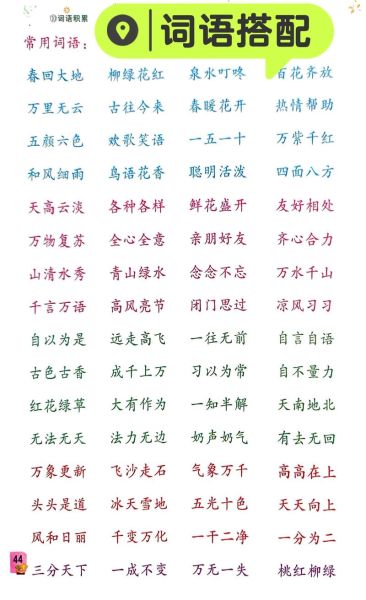 ③词语积累
词语搭配
常用词语：
春回大地 柳绿花红 泉水叮咚 百花齐放
万里无云 古往今来 春暖花开 热情帮助
五颜六色 欢歌笑语 一五一十 万紫千红
和风细雨 鸟语花香 聪明活泼 四面八方
天高云淡 各种各样 鲜花盛开 友好相处
万物复苏 全心全意 亲朋好友 齐心合力
山清水秀 青山绿水 念念不忘 万水千山
千言万语 高风亮节 闭门思过 凉风习习
自以为是 远走高飞 一往无前 自言自语
古色古香 成千上万 习以为常 自不量力
红花绿草 大有作为 一知半解 天南地北
无法无天 法力无边 奶声奶气 有去无回
万象更新 飞沙走石 气象万千 高高在上
头头是道 冰天雪地 五光十色 天天向上
风和日丽 千变万化 一干二净 一分为二
三分天下 一成不变 万无一失 桃红柳绿
44